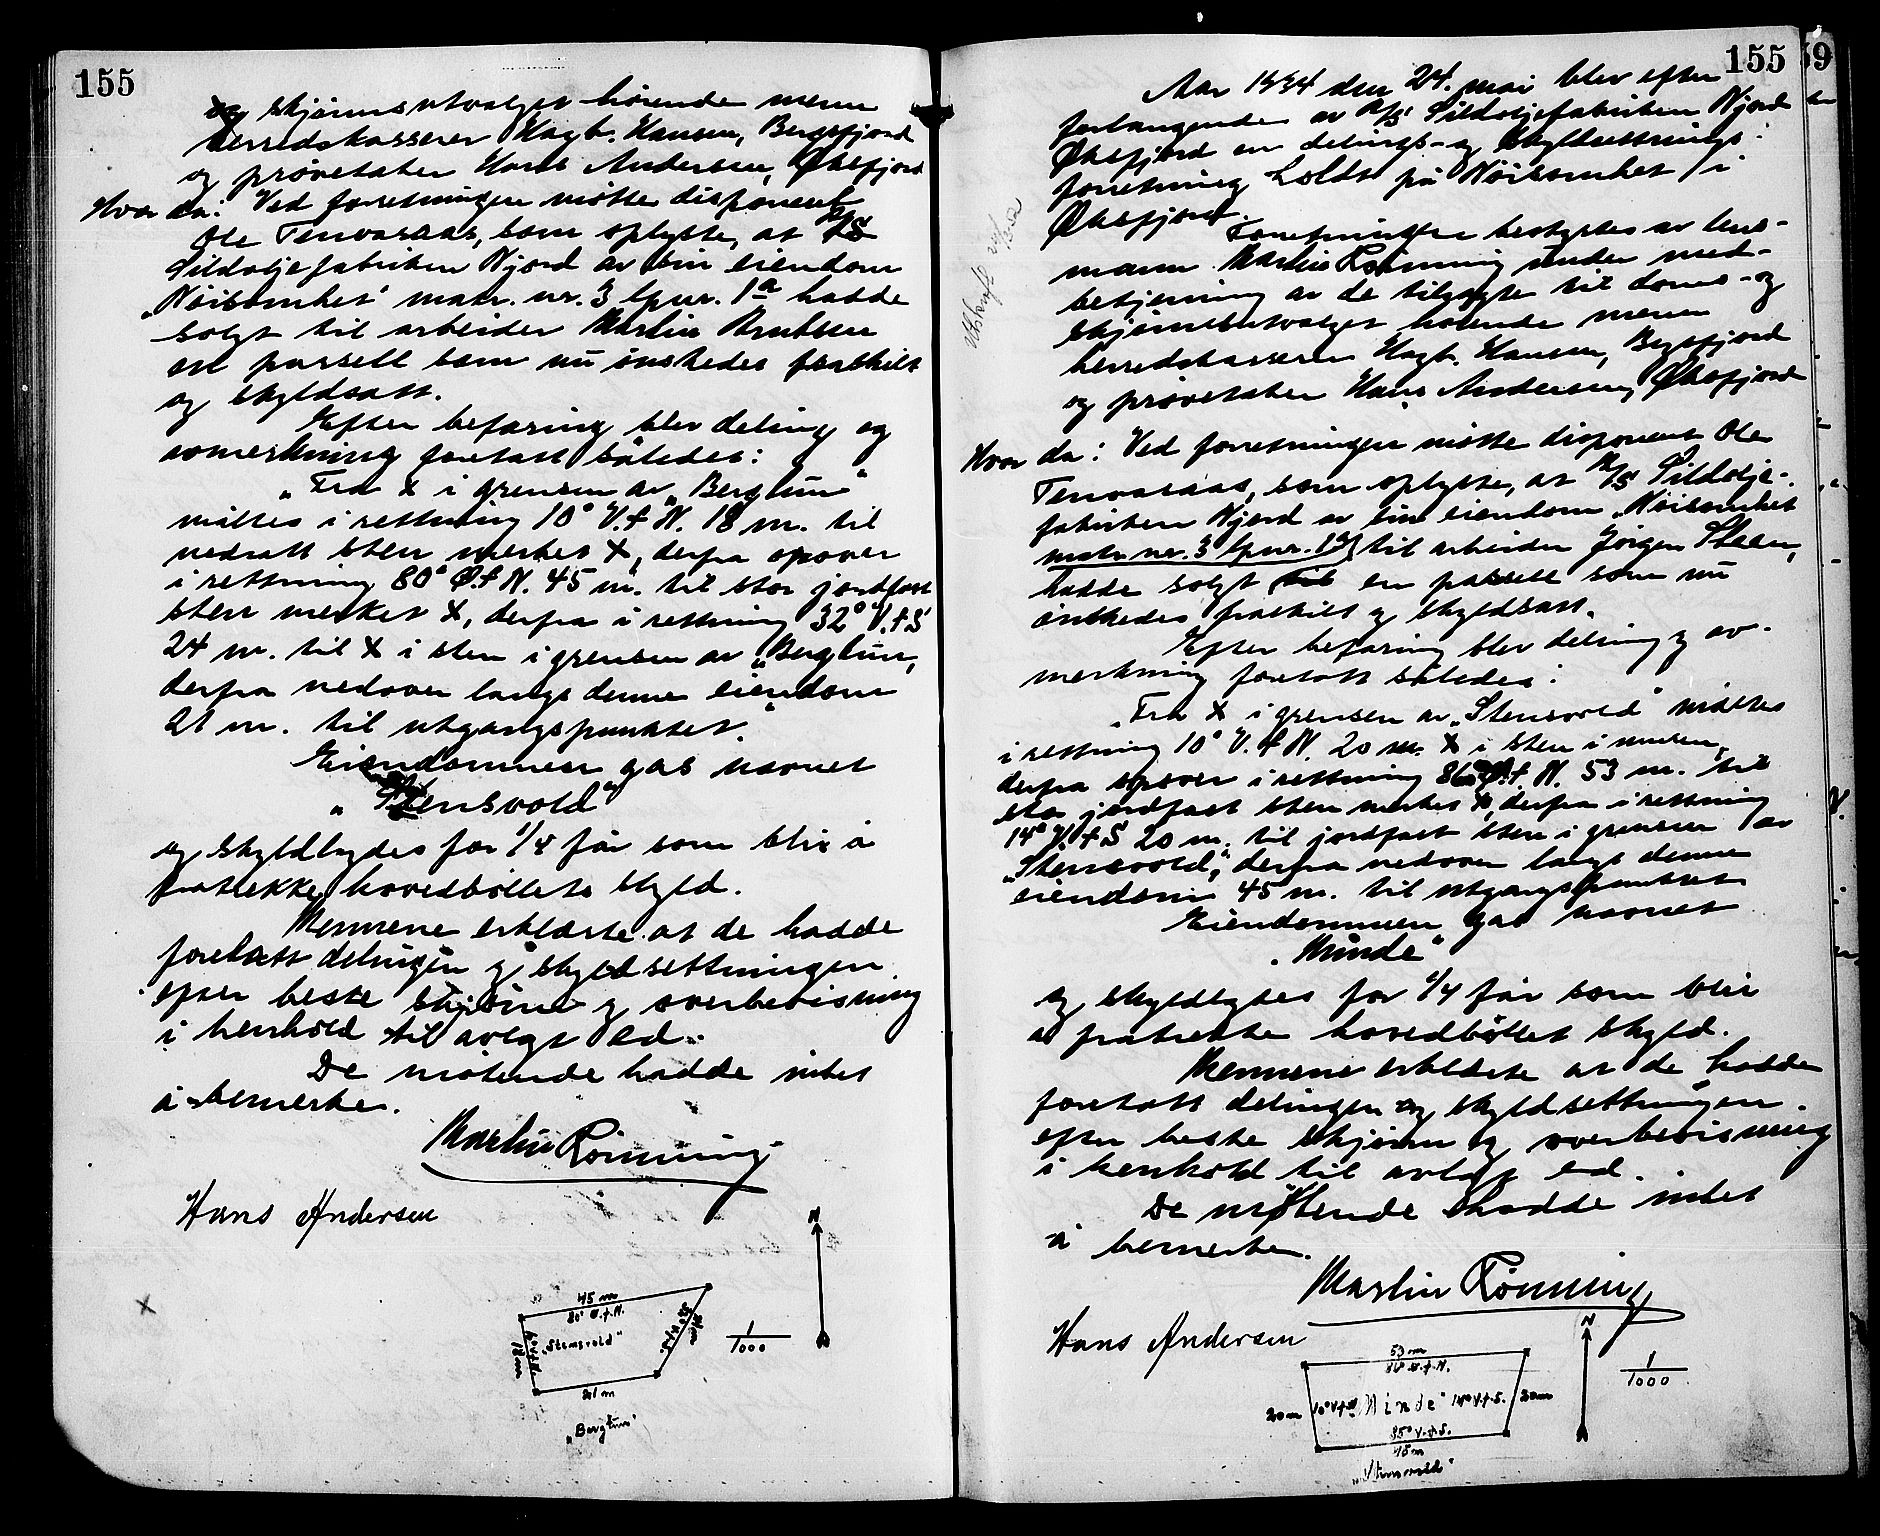 155
og skjønnsutvalget hørende menn
herredskasserer Hagb. Hansen, Bergsfjord
og prøvetaker Hans Andersen, Øksfjord
Hvor da: Ved forretningen møtte disponent
Ole Tenvaaas, som oplyste, at A/S
Sildoljefabriken Njord av sin eiendom
"Nøisomhet" matr. nr. 3 lpnr. 1a hadde
solgt til arbeider Martin Knutsen
en parsell som nu ønskedes fraskilt
og skyldsatt.
Efter befaring blev deling og
avmerkning foretatt således:
"Fra x i grensen av "Berglun"
måltes i rettning 10° V.f N. 18 m. til
nedsatt sten merket x, derfra opover
i rettning 80° Ø.f N. 45 m. til stor jordfast
sten merket x, derfra i rettning 32° V.f S
24 m. til x i sten i grensen av "Berglun,
derfra nedover langs denne eiendom
21 m. til utgangspunktet."
Eiendommen gas navnet
"Stensvold"
og skyldlegdes for 1/4 før som blir å
fratrekke hovedbøllets skyld.
Mennene erklærte at de hadde
foretatt delingen og skyldsettningen
efter beste skjønn og overbevisning
i henhold til avlagt ed.
De møtende hadde intet
å bemerke.
Martin Rønning
Hans Andersen
N
45 m
80° Ø.f.N.
"Stensvold"
18 m
1/1000
21 m
"Berglun"
155
Aar 1934 den 24. mai blev efter
forlangende av A/S Sildoljefabriken Njord
Øksfjord en delings- og skyldsettnings-
forretning holdt på Nøisomhet i
Øksfjord.
Forretningen bestyrtes av lens-
mann Martin Rønning under med-
betjening av de tilsagte til doms- og
skjønnsutvalget hørende menn
herredskasserer Hagb. Hansen, Bergsfjord
og prøvetaker Hans Andersen, Øksfjord
Hvor da: Ved forretningen møtte disponent Ole
Tenvaaas, som oplyste, at A/S Sildolje-
fabriken Njord av sin eiendom "Nøisomhet
matr nr. 3 lpnr. 1a til arbeider Jørgen Steen,
hadde solgt en parsell som nu
ønskedes fraskilt og skyldsatt.
Efter befaring blev deling og av-
merkning foretatt således:
"Fra x i grensen av "Stensvold" måltes
i rettning 10° V. f N. 20 m. x i sten i muren,
derfra opover i rettning 86° Ø.f N. 53 m. til
stor jordfast sten merket x, derfra i rettning
14° V.f S 20 m. til jordfast sten i grensen av
"Stensvold", derfra nedover langs denne
eiendom 45 m. til utgangspunktet
Eiendommen gas navnet
"Minde"
og skyldlegdes for 1/4 før som blir
å fratrekke hovedbøllet skyld.
Mennene erklærte at de hadde
foretatt delingen og skyldsettningen
efter beste skjønn og overbevisning
i henhold til avlagt ed.
De møtende hadde intet
å bemerke.
Martin Rønning
Hans Andersen
N
53 m
86° Ø.f.N.
20 m 10° V.f N "Minde" 14° V.f.S. 20 m
1/1000
85° V.f.S.
45 m
"Stensvold"